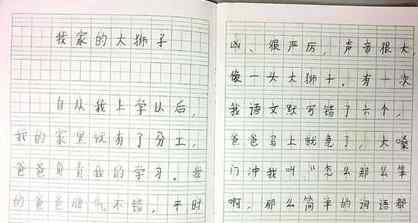 我家的大狮子
自从我上学以后，
我的家里就有了分工，
爸爸负责我的学习。我
的爸爸脾气不错，平时
凶、很严厉，声音很大，
像一头大狮子。有一次
我语文默写错了六个，
爸爸马上就急了，大嗓
门冲我叫“怎么那么笨
啊，那么简单的词语都